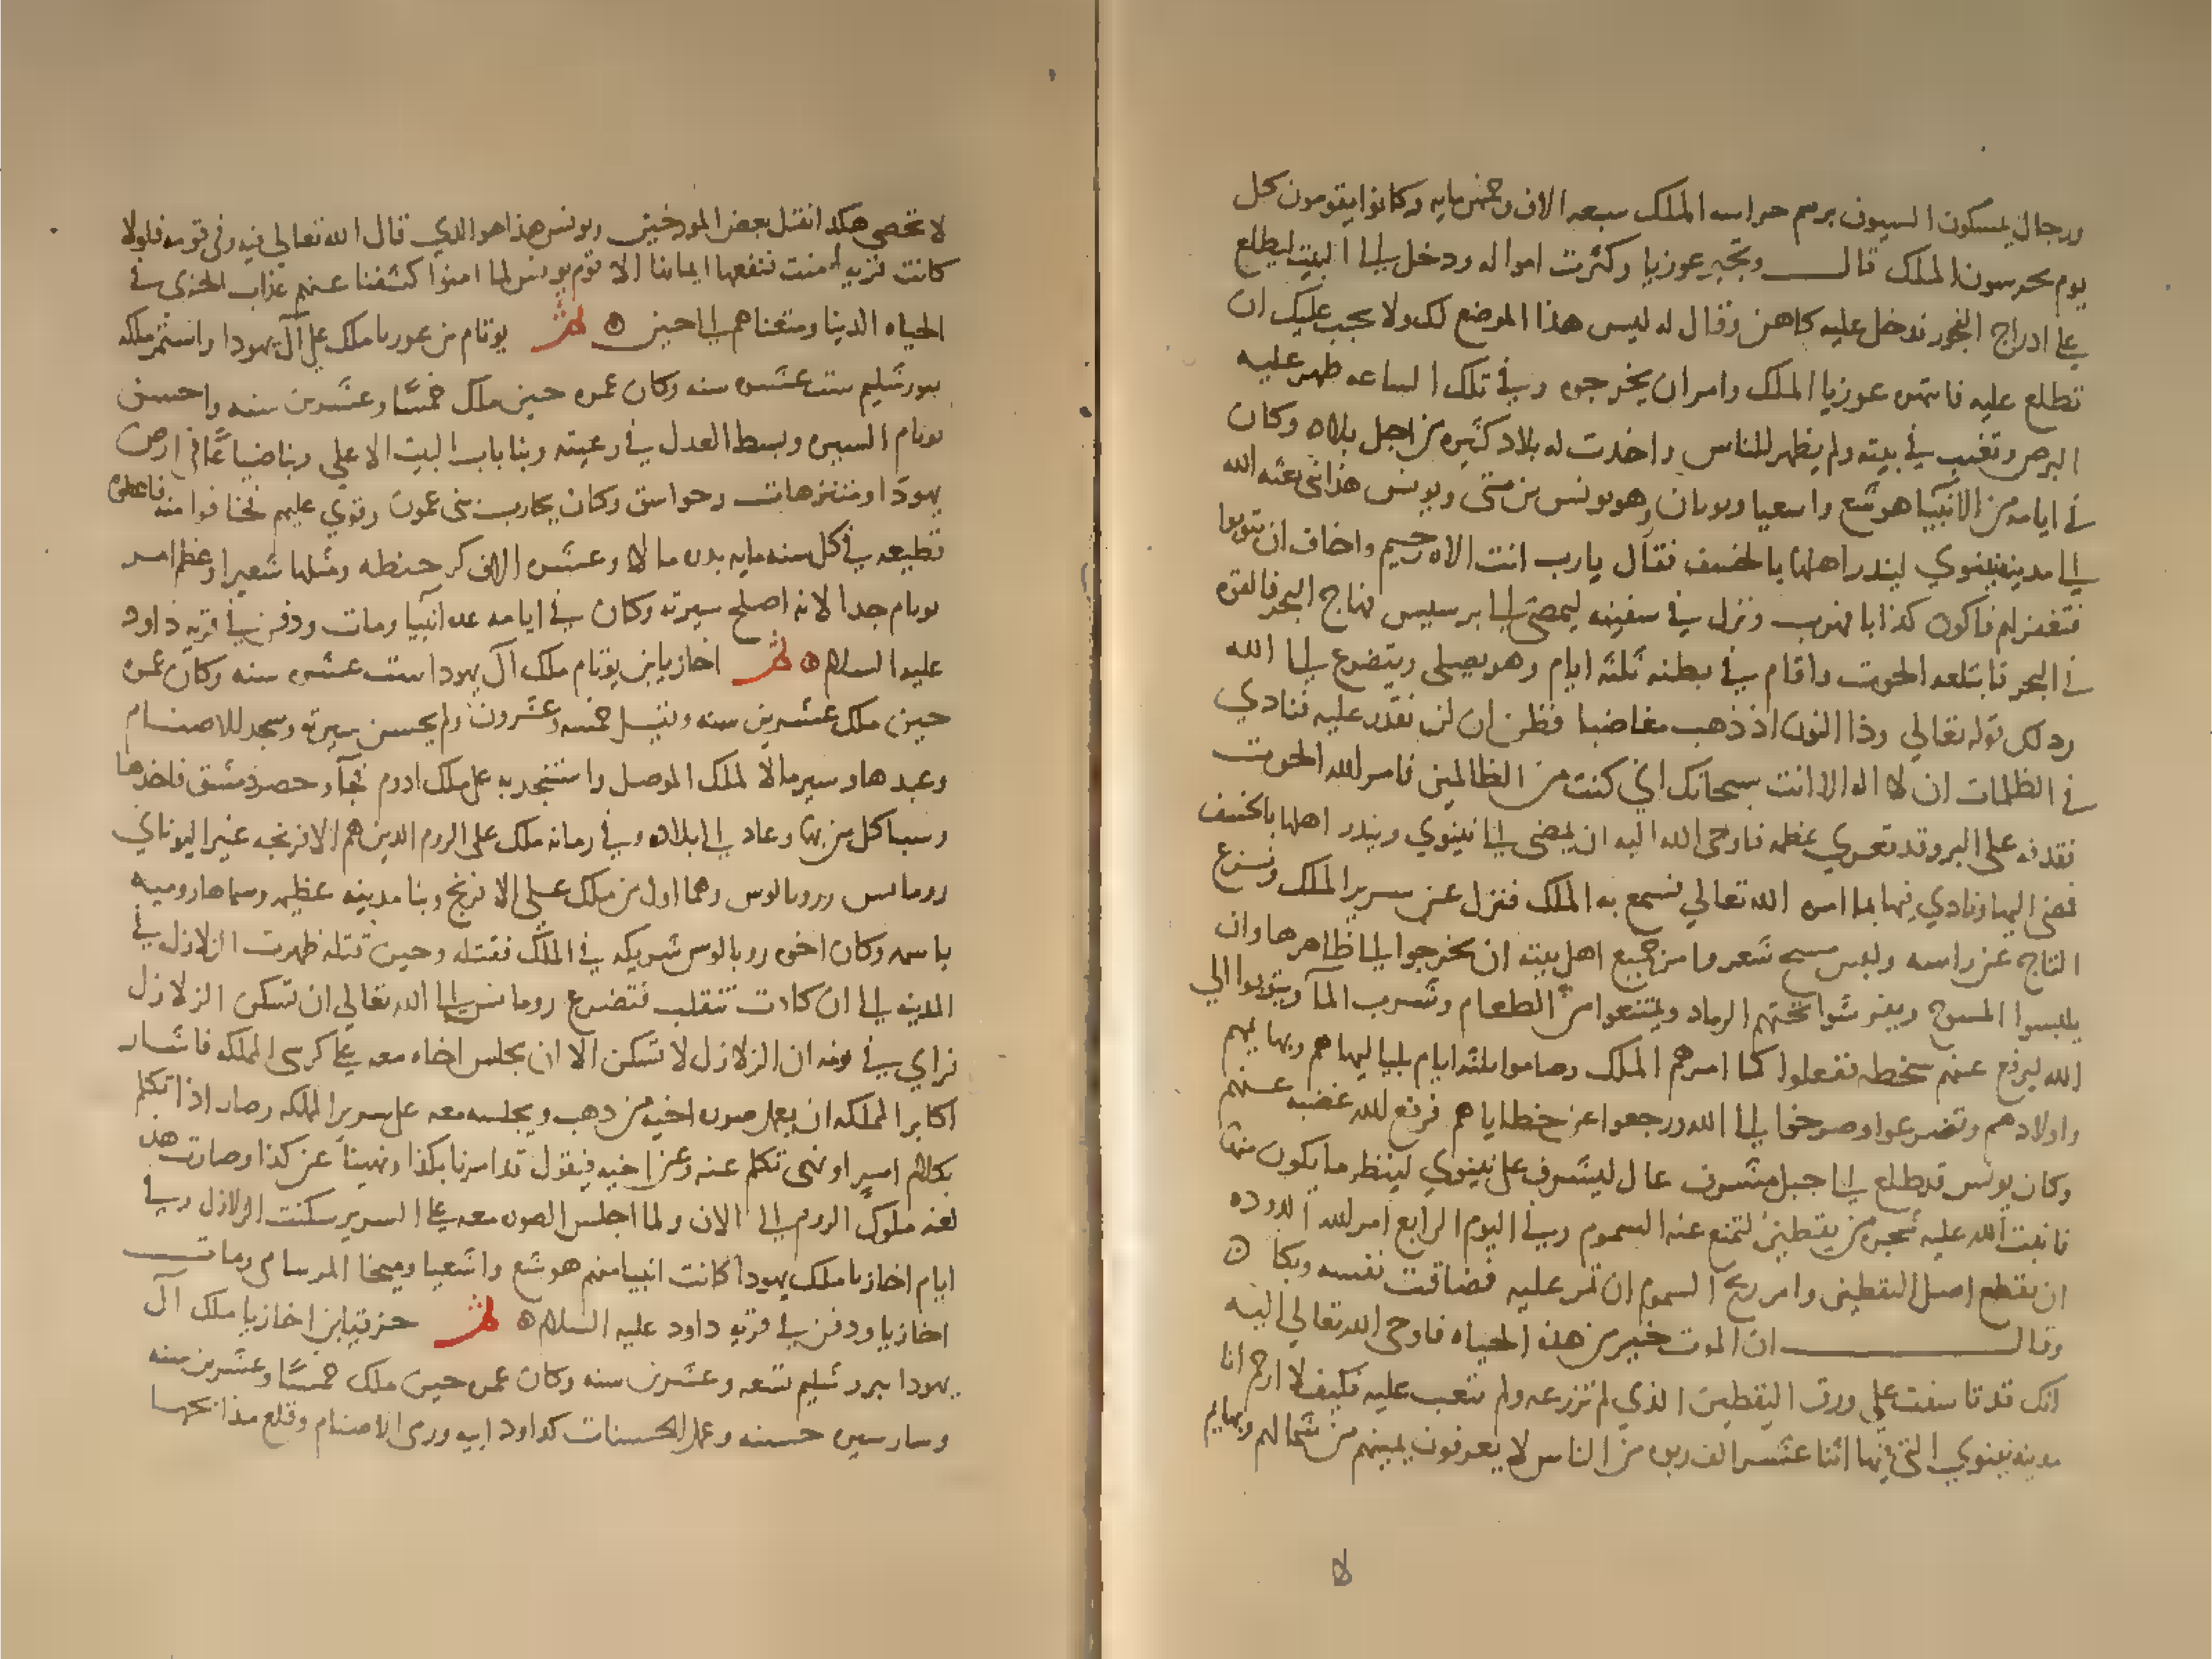 ورجال يمسكون السيوف برسم حراسه الملك سبعه الاف وخمس مايه وكانوا يقومون كل
يوم يحرسون الملك قال وتجبر عوزيا وكثرت امواله ودخل الى البيت ليطلع
على ادراج البخور فدخل عليه كاهن وقال له ليس هذا الموضع لك ولا يجب عليك ان
تطلع عليه فانتهره عوزيا الملك وامر ان يخرجوه وفي تلك الساعه ظهر عليه
البرص وتغيب في بيته ولم يظهر للناس واخذت له بلاد كثيره من اجل بلاه وكان
في ايامه من الانبيا هوشع واشعيا ويونان وهو يونس بن متى ويونس هذا نبي بعثه الله
الى مدينه نينوي لينذر اهلها بالخسف فقال يارب انت الاه رحيم واخاف ان يتوبوا
فتغفر لهم فاكون كذابا فهرب ونزل في سفينه ليمضي الى برسيس فهاج البحر فالقوه
في البحر فابتلعه الحوت واقام في بطنه ثلثه ايام وهو يصلي ويتضرع الى الله
وذلك قوله تعالي وذا النون اذ ذهب مغاضبا فظن ان لن نقدر عليه فنادي
في الظلمات ان لا اله الا انت سبحانك اني كنت من الظالمين فامر الله الحوت
فقذفه على البر وقد تعري عظمه فاوحى الله اليه ان يمضي الى نينوي وينذر اهلها بالخسف
فمضى اليها ونادي فيها بما امره الله تعالي فسمع به الملك فنزل عن سرير الملك ونزع
التاج عن راسه ولبس مسح شعر وامر جميع اهل بيته ان يخرجوا الى ظاهرها وان
يلبسوا المسوح ويفرشوا تحتهم الرماد ويمتنعوا من الطعام وشرب الما ويتوبوا الي
الله ليرفع عنهم سخطه ففعلوا كما امرهم الملك وصاموا ثلثه ايام بلياليها هم وبهايمهم
واولادهم وتضرعوا وصرخوا الى الله ورجعوا عن خطاياهم فرفع الله غضبه عنهم
وكان يونس قد طلع الى جبل مشرف عال ليشرف على نينوي لينظر ما يكون منها
فانبت الله عليه شجره من يقطين لتمنع عنه السموم وفي اليوم الرابع امر الله الدوده
ان تقطع اصل اليقطين وامر ريح السموم ان تمر عليه فضاقت نفسه وبكا
وقال ان الموت خير من هذه الحياه فاوحى الله تعالي اليه
انك قد تاسفت على ورق اليقطين الذي لم تزرعه ولم تتعب عليه فكيف لا ارحم انا
مدينه نينوي التي فيها اثنا عشر الف ربوه من الناس لا يعرفون يمينهم من شمالهم وبهايم
لا
لا تحصى هكذا نقل بعض المورخين ويونس هذا هو الذي قال الله تعالي فيه وفي قومه فلولا
كانت قريه امنت فنفعها ايمانها الا قوم يونس لما امنوا كشفنا عنهم عذاب الخزي في
الحياه الدنيا ومتعناهم الى حين يوتام بن عوزيا ملك على آل يهودا واستمر ملكه
ببورشليم ست عشره سنه وكان عمره حين ملك خمسا وعشرين سنه واحسن
يوتام السيره وبسط العدل في رعيته وبنا باب البيت الاعلى وبنا ضياعا في ارض
يهودا ومتنزهات وحواسق وكان يحارب بني عمون وقوي عليهم فخافوا منه فاعطوه
قطيعه في كل سنه مايه بدره مالا وعشره الاف كر حنطه ومثلها شعيرا وعظم امر
يوتام جدا لانه اصلح سيرته وكان في ايامه عده انبيا ومات ودفن في قريه داود
عليه السلام اخازيا بن يوتام ملك آل يهودا ست عشره سنه وكان عمره
حين ملك عشرين سنه وقيل خمسه وعشرون ولم يحسن سيرته وسجد للاصنام
وعبدها وسير مالا لملك الموصل واستنجد به على ملك ادوم فجا وحصر دمشق فاخذها
وسبا كل من بها وعاد الى بلاده وفي زمانه ملك على الروم الذين هم الافرنجه غير اليوناني
رومانس ورومالوس وهما اول من ملك على الافرنج وبنا مدينه عظيمه وسماها روميه
باسمه وكان اخوه رومالوس شريكه في الملك فقتله وحين قتله ظهرت الزلازل في
المدينه الى ان كادت تنقلب فتضرع رومانس الى الله تعالي ان تسكن الزلازل
فراي في نومه ان الزلازل لا تسكن الا ان يجلس اخاه معه على كرسي المملكه فاشار
اكابر المملكه ان يعمل صوره اخيه من ذهب ويجلسه معه على سرير المملكه وصار اذا تكلم
بكلام امر او نهي تكلم عنه وعن اخيه فيقول قد امرنا بكذا ونهينا عن كذا وصارت هذه
لغه ملوك الروم الى الان ولما اجلس الصوره معه على السرير سكنت الزلازل وفي
ايام اخازيا ملك يهودا كانت انبيا منهم هوشع واشعيا وميخا المرساي ومات
اخازيا ودفن في قريه داود عليه السلام حزقيا بن اخازيا ملك آل
يهودا ببورشليم تسعه وعشرين سنه وكان عمره حين ملك خمسا وعشرين سنه
وسار سيره حسنه وعمل الحسنات كداود ابيه ورمى الاصنام وقلع مذابحها